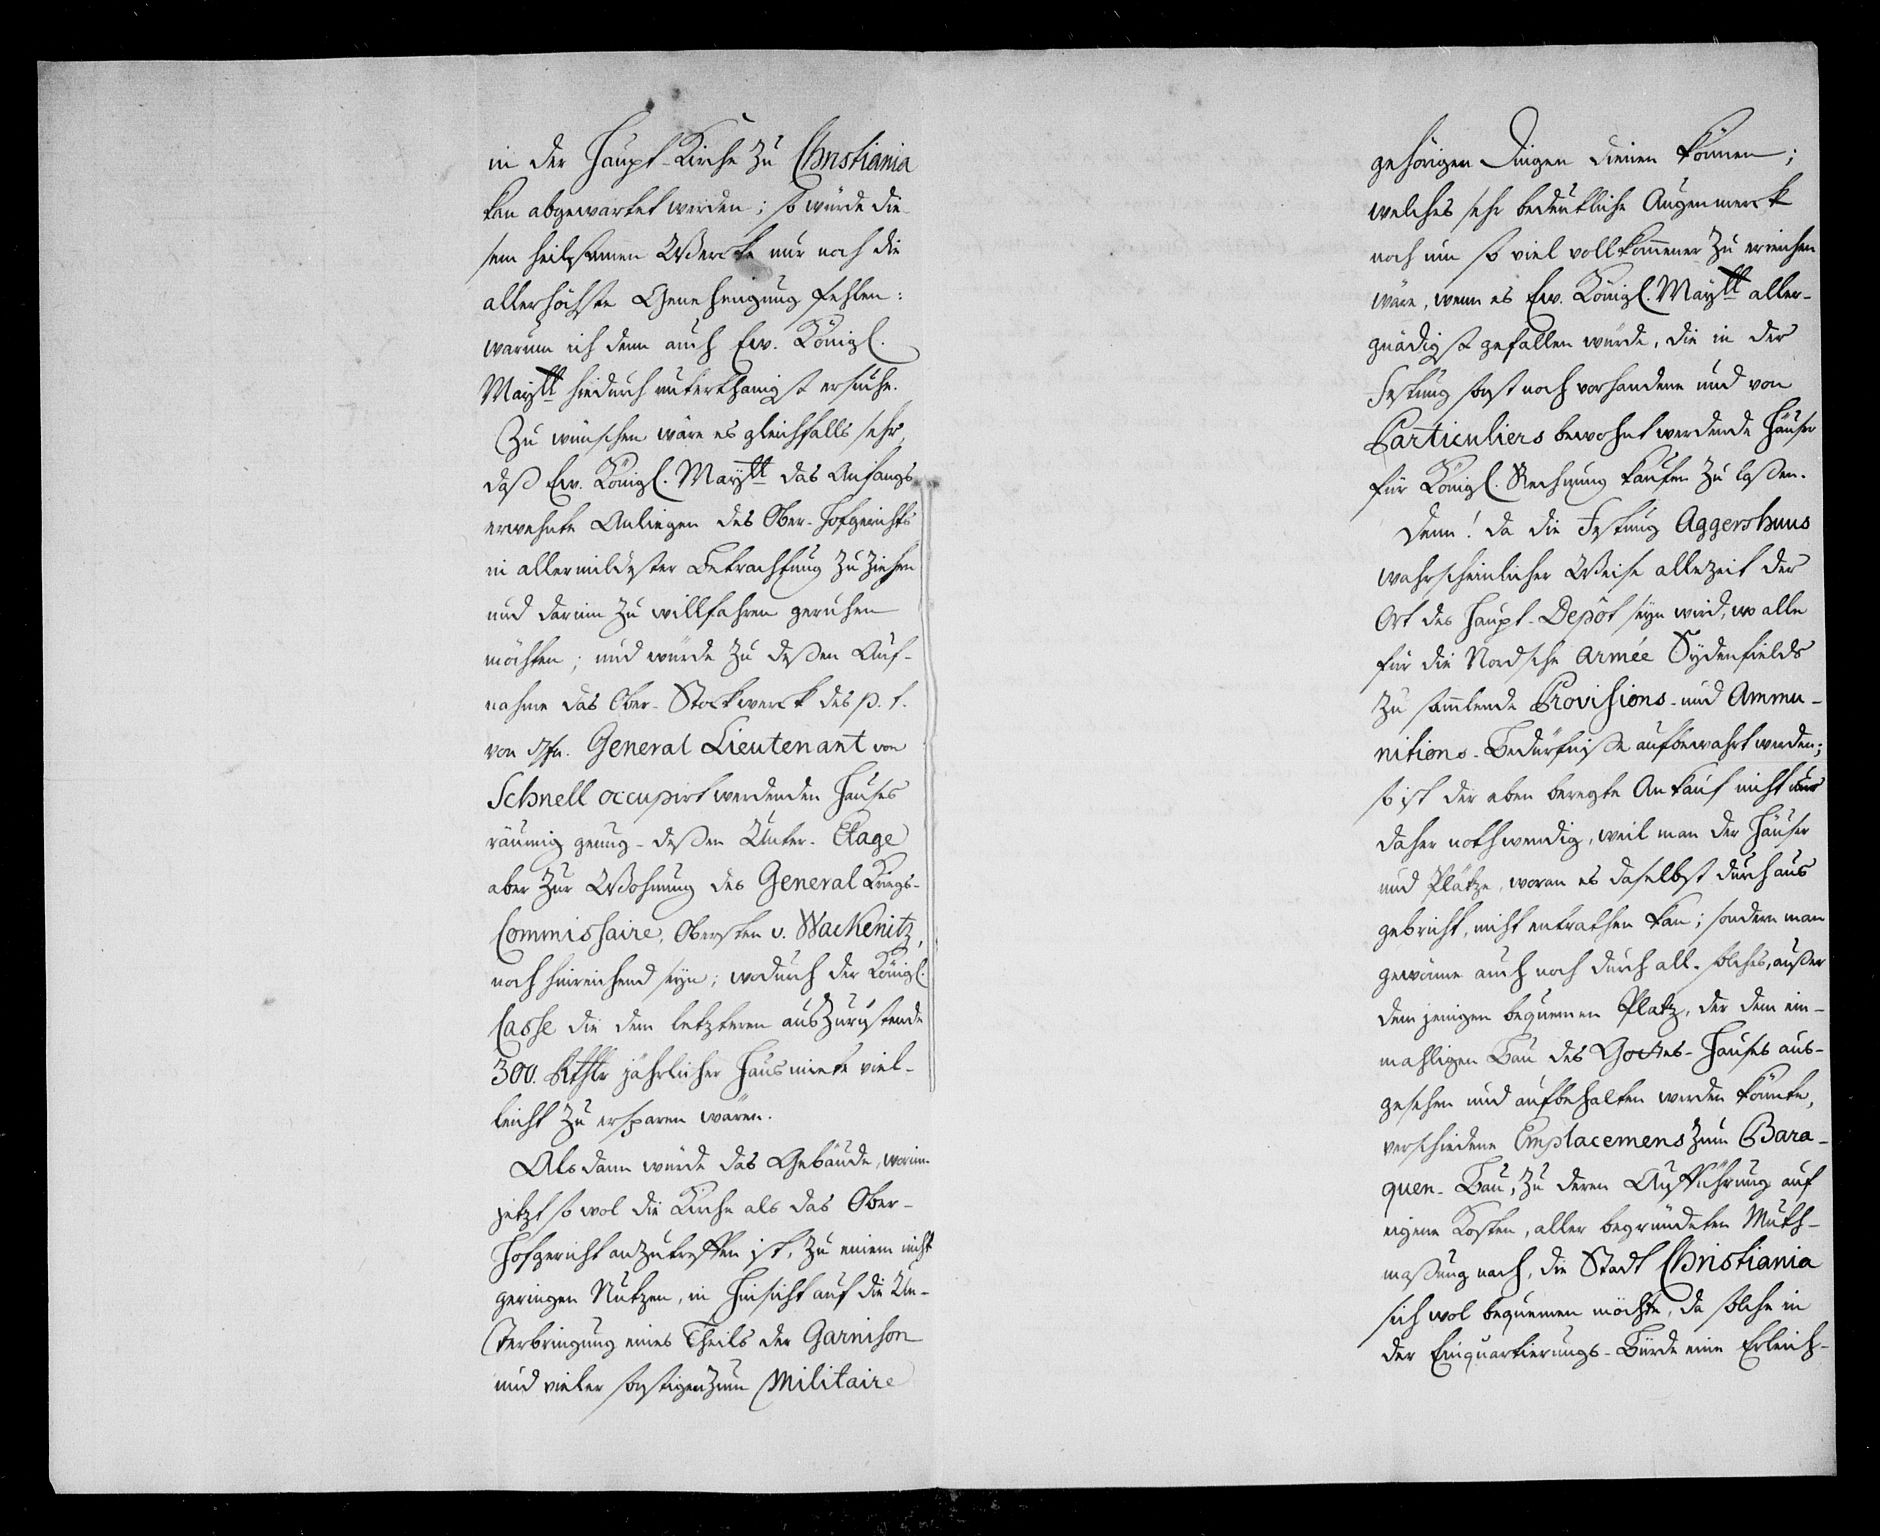 in der Haupt-Kirche zu Christiania
kan abgewartet werden; so würde die
sem heilsamen Wercke nur noch die
allerhöchste Genehmigung fehlen:
warum ich denn auch Ew. Königl.
Maytt hiedurch unterthänigst ersuche.
Zu wünschen wäre es gleichfalls sehr,
daß Ew. Königl. Maytt das Anfangs
erwehnte Anliegen des Ober-Hofgerichts
in allermildester Betrachtung zu ziehen
und darinn zu willfahren geruhen
möchten; und würde zu deßen Auf-
nahme das Ober-Stockwerck des p. t.
von General Lieutenant von
Schnell occupirt werdenden Hauses
räumig genug - deßen Unter-Etage
aber zur Wohnung des General Kriegs-
Commissaire, Obersten v. Wackenitz,
noch hinreichend seyn; wodurch der Königl.
Casse die dem letzteren auszurüstende
300. Rthlr jährlicher Hausmiete viel-
leicht zu ersparen wären.
Als dann würde das Gebäude, worinn
jetzt so wol die Kirche als das Ober-
Hofgericht anzutreffen ist, zu einem nicht
geringen Nutzen, in Hinsicht auf die Un-
terbringung eines Theils der Garnison
und vieler sonstigen zum Militaire
gehörigen Dingen dienen können;
welches sehr bedenkliche Augenmerck
noch um so viel vollkommener zu erreichen
wäre, wenn es Ew. Königl. Maytt aller-
gnädigst gefallen würde, die in der
Festung sonst noch vorhandene und von
Particuliers bewohnt werdende Häuser
für Königl. Rechnung kaufen zu laßen.
Denn! da die Festung Aggershuus
wahrscheinlicher Weise allezeit der
Ort des Haupt-Depôt seyn wird, wo alle
für die Nordsche Armée Sydenfields
zu sammlende Provisions- und Ammu-
nitions-Bedürfniße aufbewahrt werden;
so ist der eben beregte Ankauf nicht nur
daher nothwendig, weil man der Häuser
und Plätze, woran es daselbst durchaus
gebricht, nicht entrathen kan; sondern man
gewönne auch noch durch all-solches, außer
demjenigen bequemen Platz, der dem ein-
mahligen Bau des Gottes-Hauses aus-
gesehen und aufbehalten werden könnte,
verschiedene Emplacemens zum Bara-
quen-Bau, zu deren Aufführung auf
eigene Kosten, aller begründeten Muth-
maßung nach, die Stadt Christiania
sich wol bequemen möchte, da solche in
der Einquartierungs-Bürde eine Erleich-